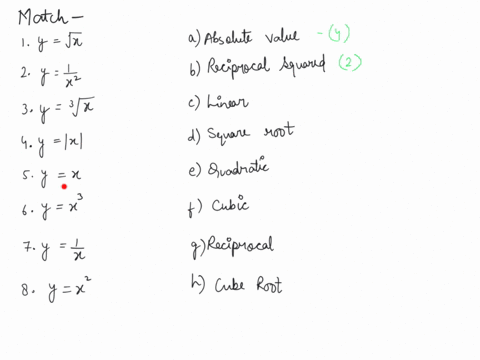 Match –
1. y = √x
2. y = 1/x²
3. y = ³√x
4. y = |x|
5. y = x
6. y = x³
7. y = 1/x
8. y = x²
a) Absolute value – (4)
b) Reciprocal Squared (2)
c) Linear
d) Square root
e) Quadratic
f) Cubic
g) Reciprocal
h) Cube Root